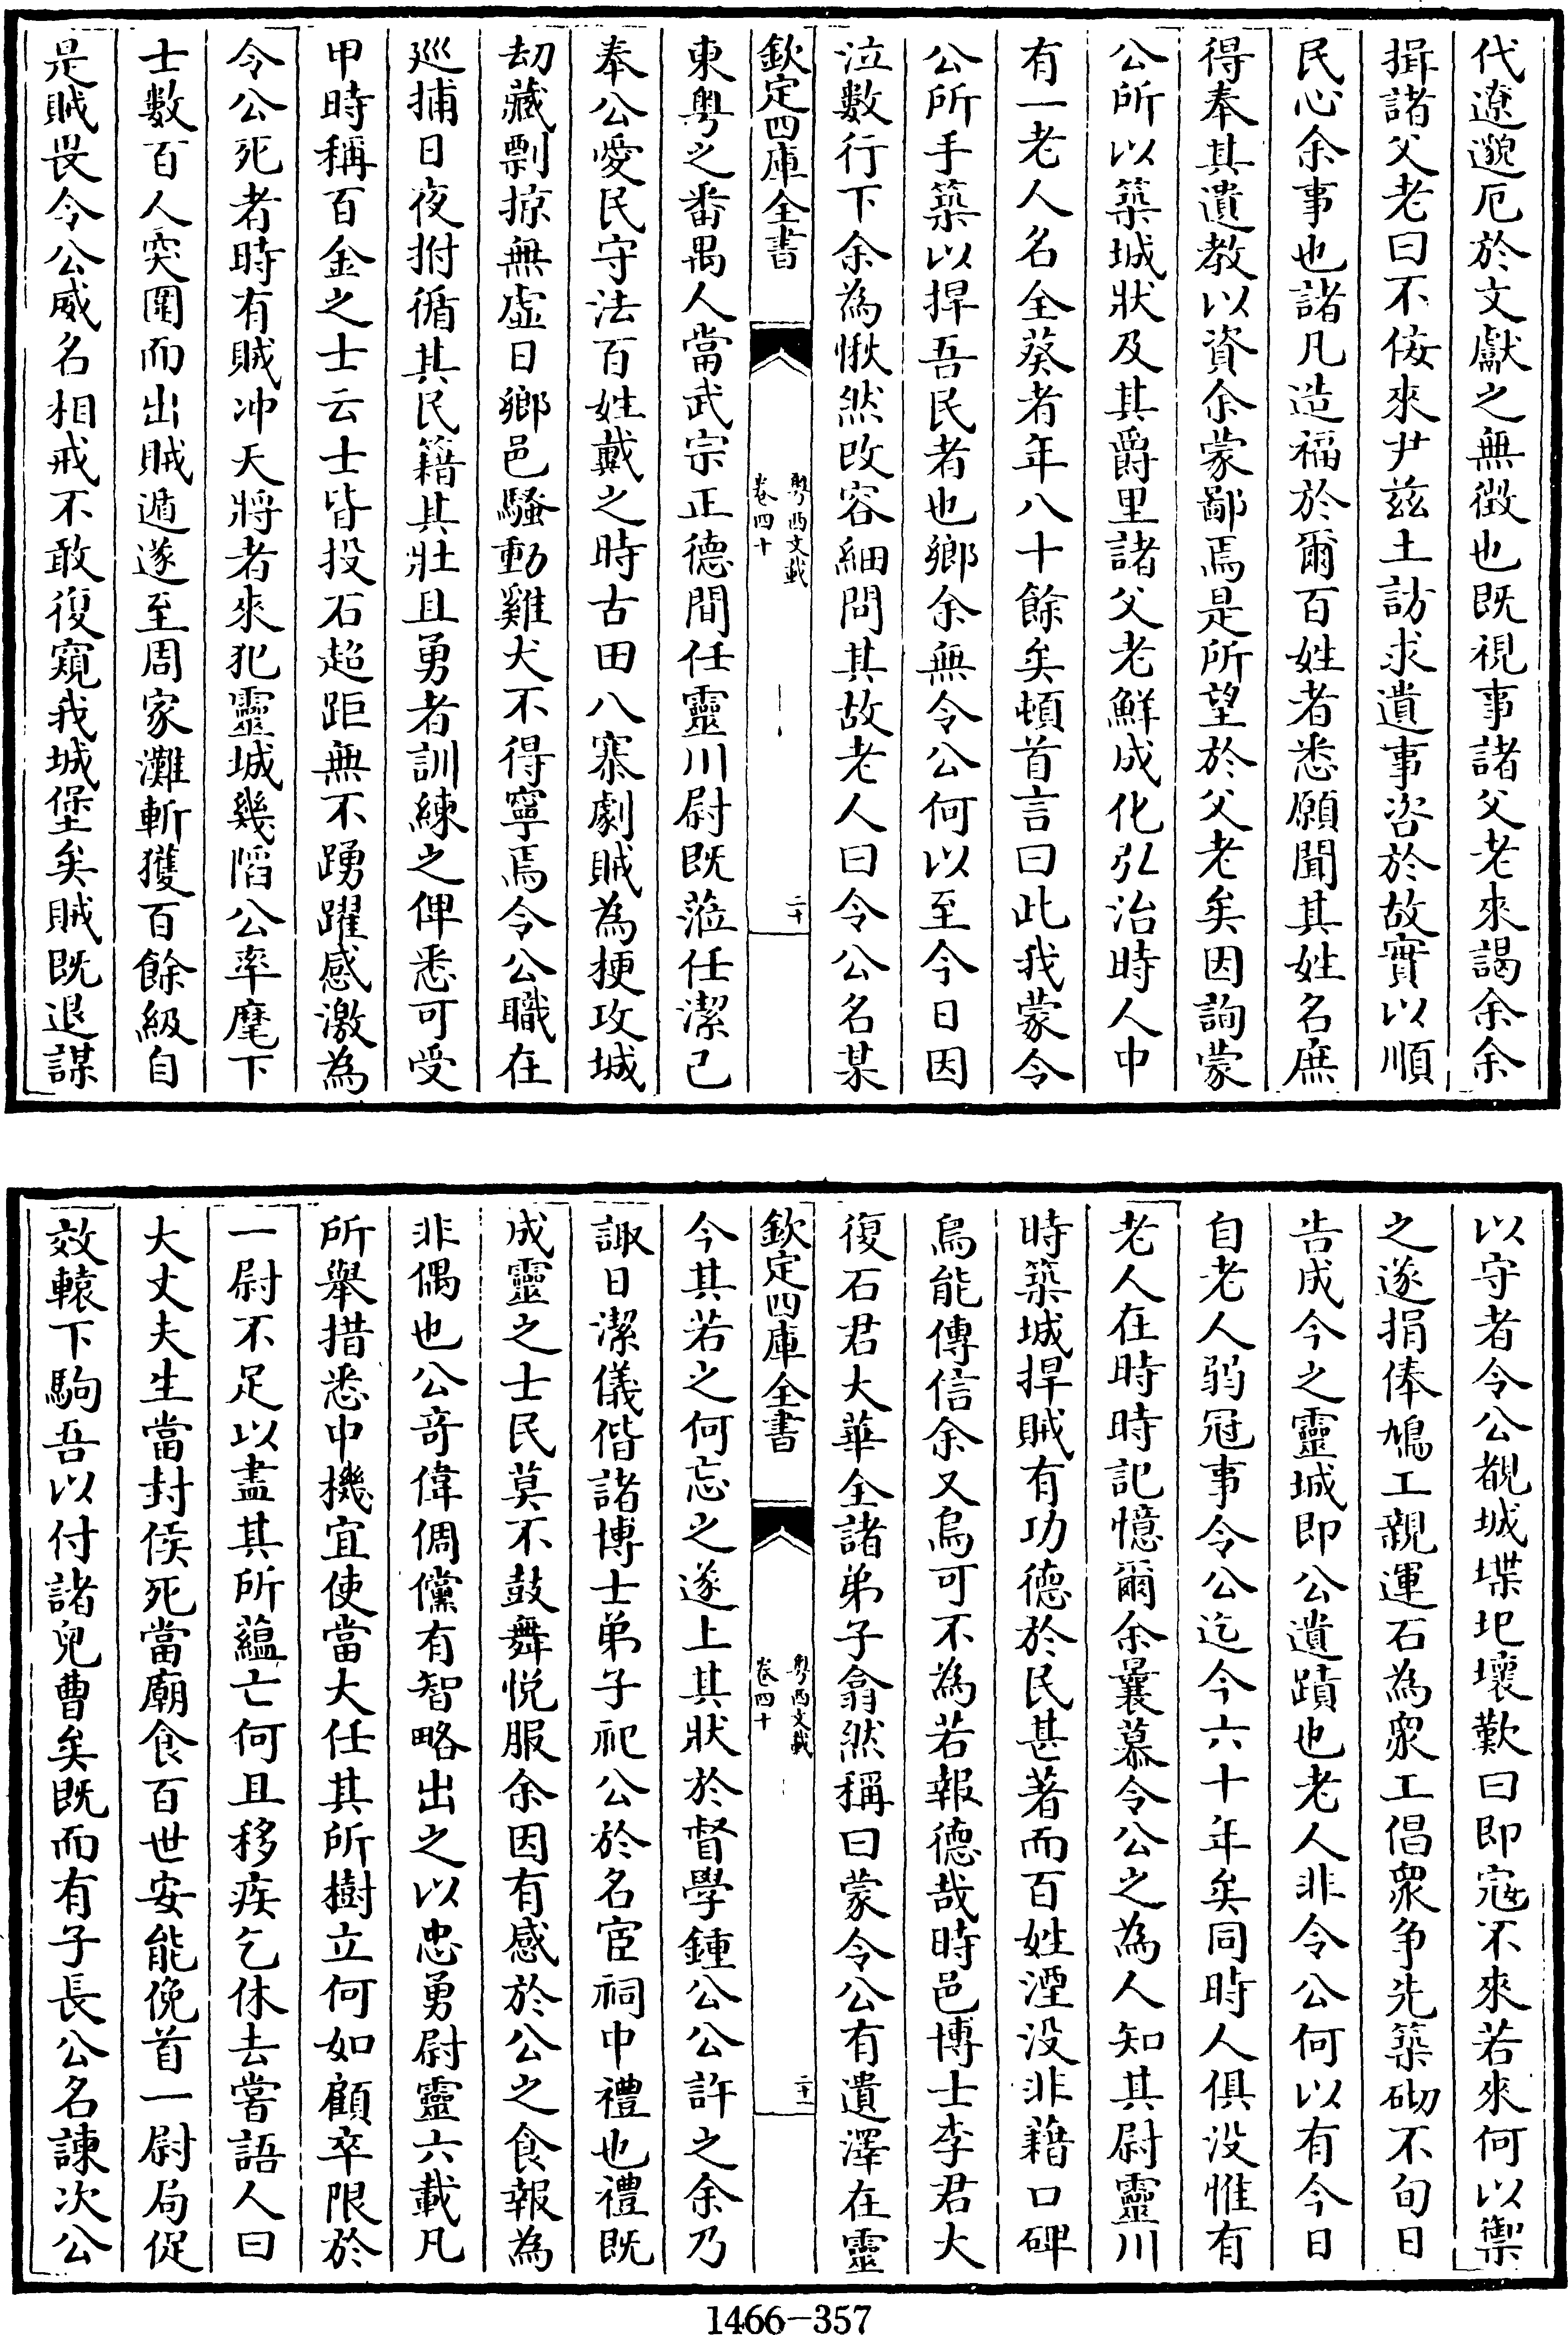 代遼邈厄於文獻之無徴也既視事諸父老來謁余余
揖諸父老曰不佞來尹兹土訪求遺事咨於故實以順
民心余事也諸凡造福於爾百姓者悉願聞其姓名庶
得奉其遺教以資余蒙鄙焉是所望於父老矣因詢蒙
公所以築城狀及其爵里諸父老鮮成化弘治時人中
有一老人名全葵者年八十餘矣頓首言曰此我蒙令
公所手築以捍吾民者也鄉余無令公何以至今日因
泣數行下余為愀然改容細問其故老人曰令公名某
欽定四庫全書
粤西文載
卷四十
二十
東粤之番禺人當武宗正德間任靈川尉既蒞任潔己
奉公愛民守法百姓戴之時古田八寨劇賊為梗攻城
刼藏剽掠無虛日鄉邑騷動雞犬不得寧焉令公職在
廵捕日夜拊循其民籍其壯且勇者訓練之俾悉可受
甲時稱百金之士云士皆投石超距無不踴躍感激為
令公死者時有賊冲天將者來犯靈城幾䧟公率麾下
士數百人突圍而出賊遁遂至周家灘斬獲百餘級自
是賊畏令公威名相戒不敢復窺我城堡矣賊既退謀
以守者令公覩城堞圯壞歎曰即寇不來若來何以禦
之遂捐俸鳩工親運石為衆工倡衆争先築砌不旬日
告成今之靈城即公遺蹟也老人非令公何以有今日
自老人弱冠事令公迄今六十年矣同時人俱没惟有
老人在時時記憶爾余曩慕令公之為人知其尉靈川
時築城捍賊有功德於民甚著而百姓湮没非藉口碑
烏能傳信余又烏可不為若報德哉時邑博士李君大
復石君大華全諸弟子翕然稱曰蒙令公有遺澤在靈
欽定四庫全書
粤西文載
卷四十
二十一
今其若之何忘之遂上其狀於督學鍾公公許之余乃
諏日潔儀偕諸博士弟子祀公於名宦祠中禮也禮既
成靈之士民莫不鼓舞悦服余因有感於公之食報為
非偶也公奇偉倜儻有智略出之以忠勇尉靈六載凡
所舉措悉中機宜使當大任其所樹立何如顧卒限於
一尉不足以盡其所藴亡何且移疾乞休去嘗語人曰
大丈夫生當封侯死當廟食百世安能俛首一尉局促
效轅下駒吾以付諸兒曹矣既而有子長公名諫次公
1466-357